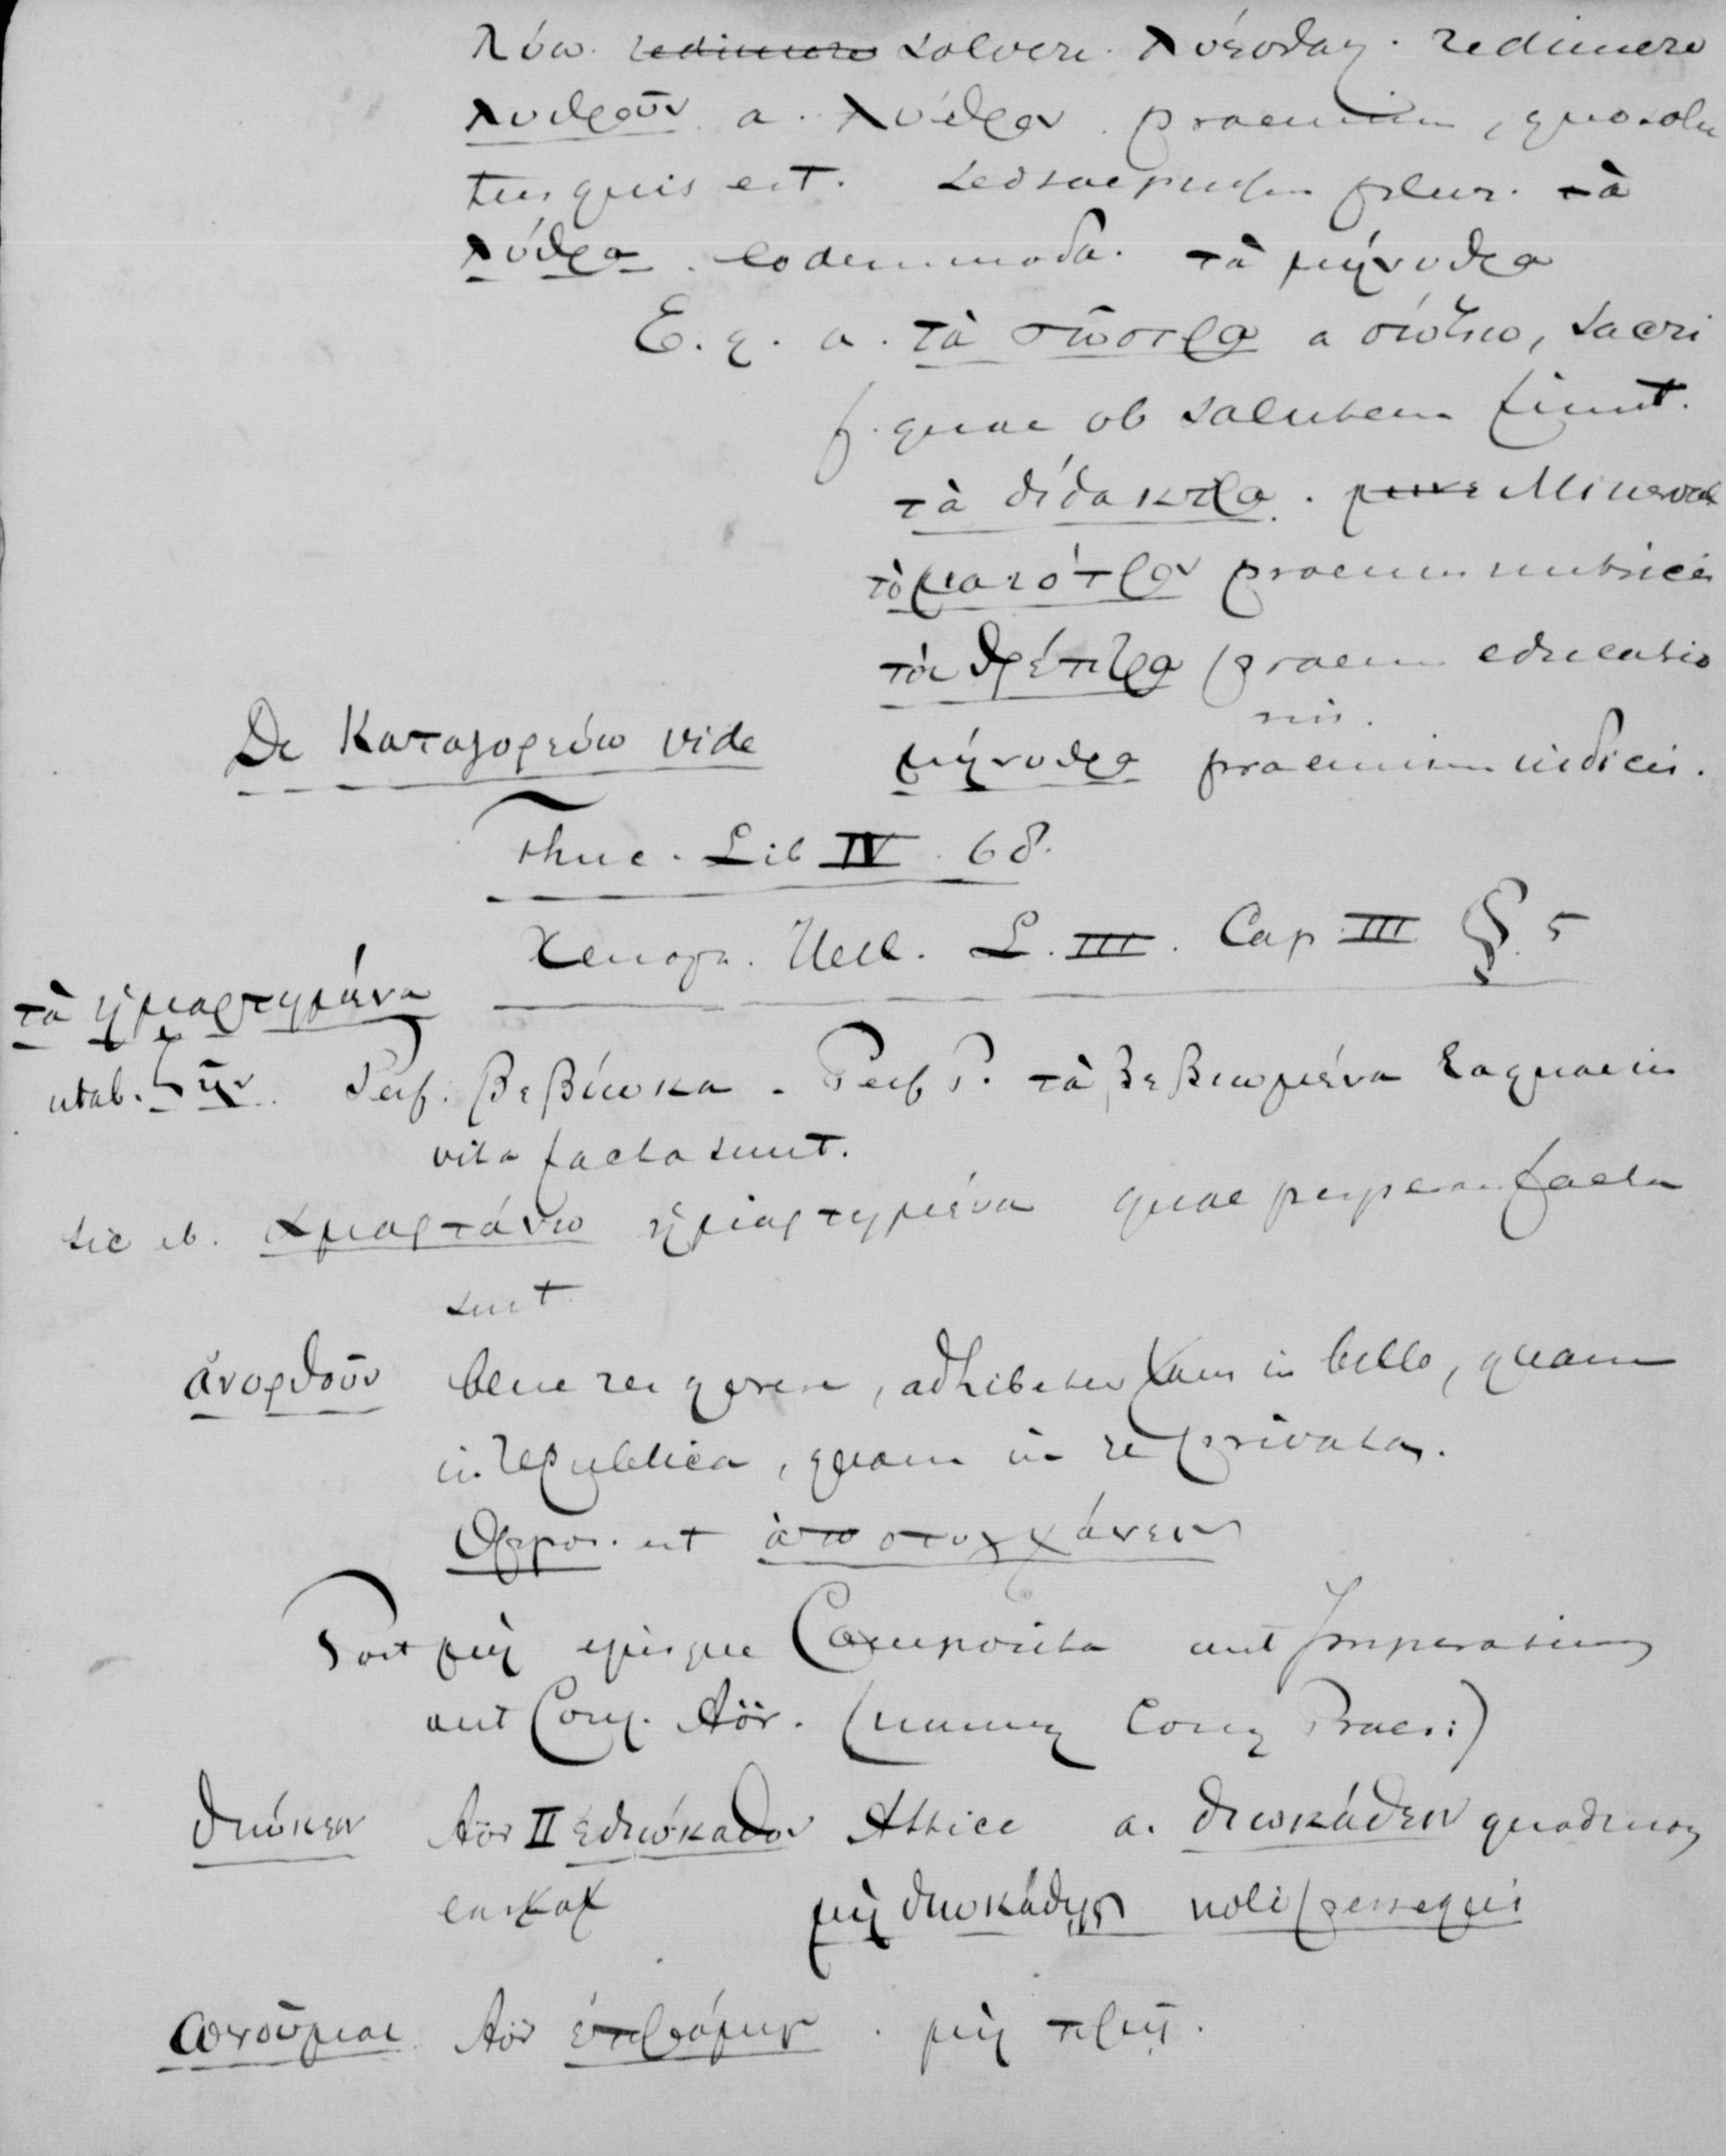 λύω. redimere solvere. λύεσθαι. redimere
λυθροῦν a. λύθρον. praemium, quo solu
tus quis est. sed saepius plur. τὰ
λύθρα. eodem modo. τὰ μήνυθρα
E. g. a. τὰ σῶστρα a σώζω, sacri
f. quae ob salutem fiunt.
τὰ δίδακτρα. Minerval
τὸ μαιότρον praemium nutricis
τὰ θρέπτρα praem educatio
nis.
De Καταγορεύω vide
μήνυθρα praemium indicis.
Thuc. Lib IV. 68.
Xenoph. Hell. L. III. Cap III § 5
τὰ ἡμαρτημένα
et ab. ζῆν. Perf. βεβίωκα. Perf P. τὰ βεβιωμένα ea quae in
vita facta sunt.
sic ab. ἁμαρτάνω ἡμαρτημένα quae perperam facta
sunt
ἀνορθοῦν bene rem gerere, adhibetur tam in bello, quam
in republica, quam in re privata.
Oppos. est ἀποτυγχάνειν
Post μή ejusque Composita aut Imperativus
aut Conj. Aor. (numq Conj Praes:)
διώκειν Aor II ἐδιώκαθον Attice a. διωκάθειν quod non
exstat μὴ διωκάθῃς noli persequi
ὠνοῦμαι Aor ἐπριάμην. μὴ πρίῃ.